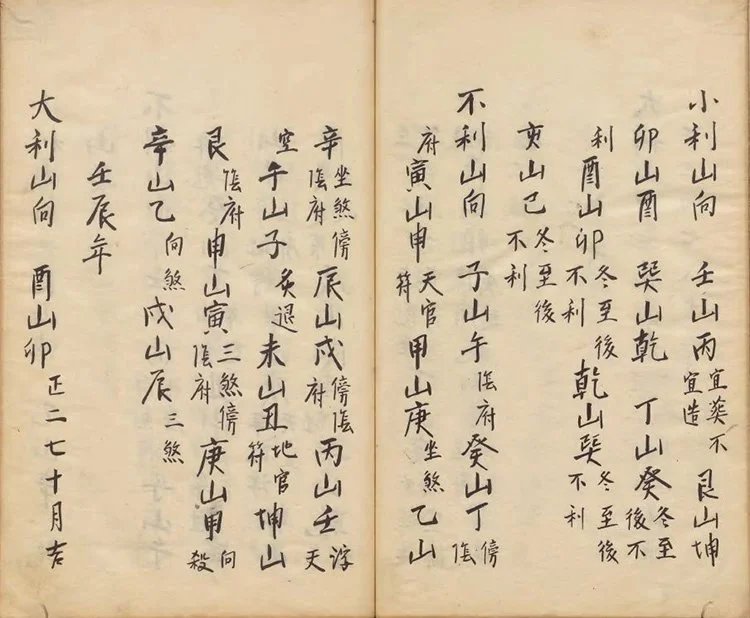 小利山向 壬山丙 宜葬不宜造 艮山坤
卯山酉 巽山乾 丁山癸 冬至後不
利 酉山卯 冬至後不利 乾山巽 冬至後不利
亥山巳 冬至後不利
不利山向 子山午 陰府 癸山丁 傍陰
府 寅山申 天官符 甲山庚 坐煞 乙山
辛 坐煞傍陰府 辰山戌 傍陰府 丙山壬 浮天
空 午山子 炙退 未山丑 地官符 坤山
艮 陰府 申山寅 三煞傍陰府 庚山甲 向殺
辛山乙 向煞 戌山辰 三煞
壬辰年
大利山向 酉山卯 正二七十月吉